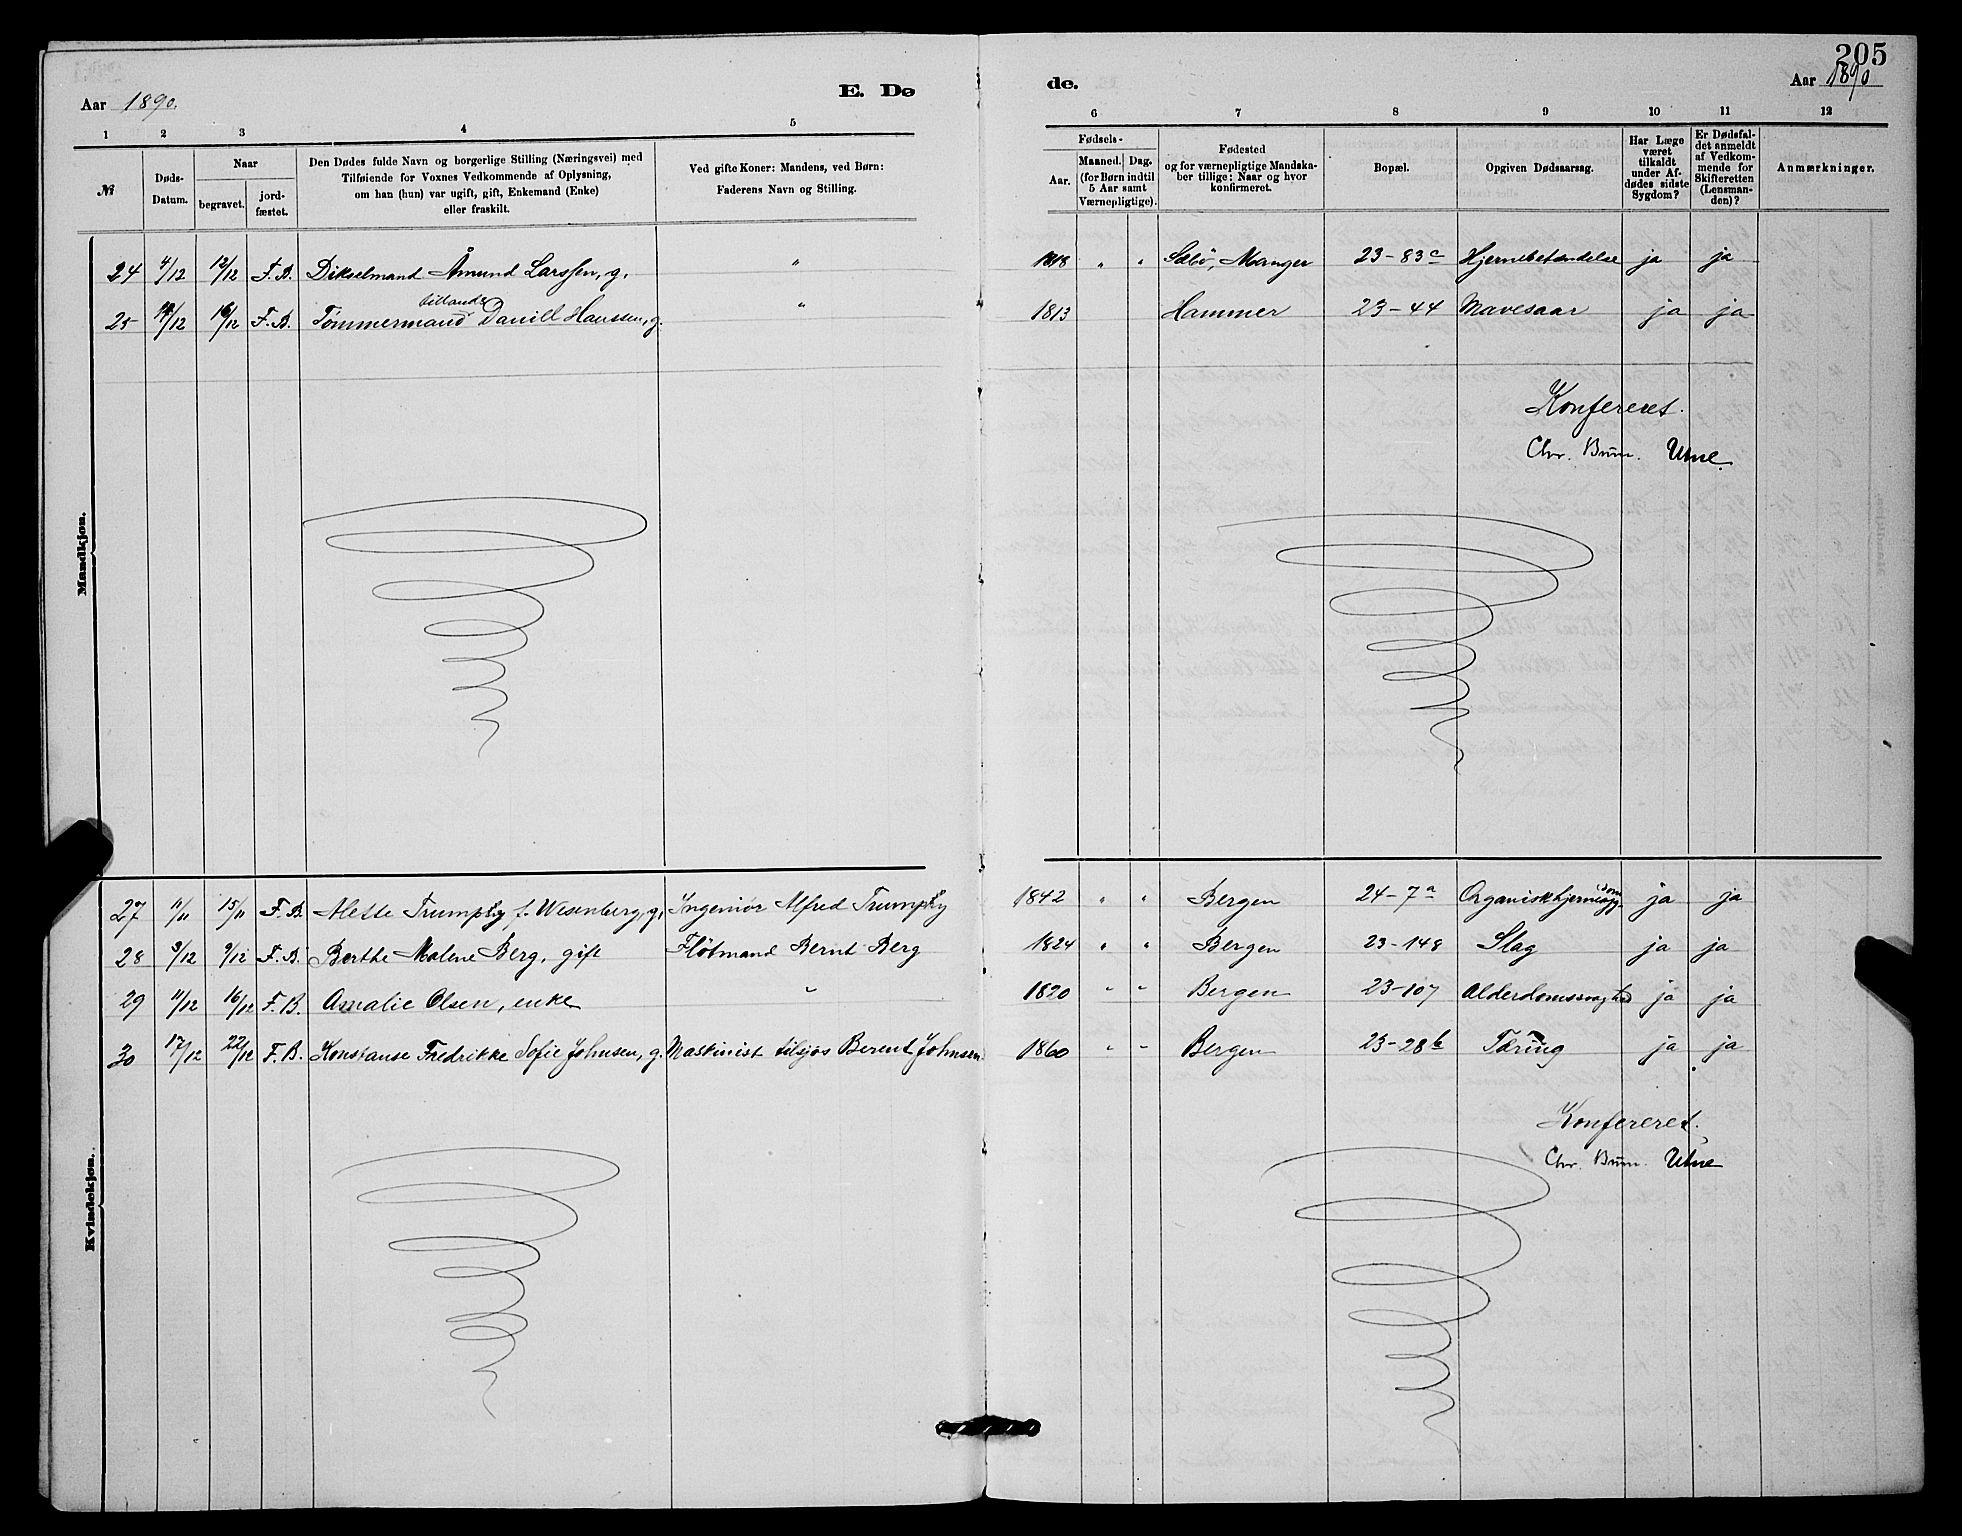 205
Aar 1890.
E. Dø
de.
Aar 1890
1 2 3 4 5 6 7 8 9 10 11 12
№
Døds-Datum.
Naar
begravet.
jord-fæstet.
Den Dødes fulde Navn og borgerlige Stilling (Næringsvei) med
Tilføiende for Voxnes Vedkommende af Oplysning,
om han (hun) var ugift, gift, Enkemand (Enke)
eller fraskilt.
Ved gifte Koner: Mandens, ved Børn:
Faderens Navn og Stilling.
Fødsels-
Aar.
Maaned. Dag.
(for Børn indtil
5 Aar samt
Værnepligtige).
Fødested
og for værnepligtige Mandska-
ber tillige: Naar og hvor
konfirmeret.
Bopæl.
Opgiven Dødsaarsag.
Har Læge
været
tilkaldt
under Af-
dødes sidste
Sygdom?
Er Dødsfal-
det anmeldt
af Vedkom-
mende for
Skifteretten
(Lensman-
den)?
Anmærkninger.
Mandkjøn.
24 4/12 12/12 F.B. Dikselmand Åmund Larssen, g. " 1818 " " Sæbø, Manger 23-83c Hjernebetændelse ja ja
tillands
25 /12 16/12 F.B. Tømmermand Daniel Hanssen, g. " 1813 Hammer 23-44 Mavesaar ja ja
Konfereret.
Chr. Bruun. Utne.
Kvindekjøn.
27 11/11 15/11 F.B. Mette Trumphy, f. Wesenberg, g. Ingeniør Alfred Trumphy 1842 " " Bergen 24-7a Organisk hjernesygdom ja ja
28 3/12 9/12 F.B. Berthe Malene Berg, gift Fløtmand Bernt Berg 1824 " " Bergen 23-148 Slag ja ja
29 11/12 16/12 F.B. Amalie Olsen, enke " 1820 " " Bergen 23-107 Alderdomssvaghed ja ja
30 17/12 22/12 F.B. Konstanse Fredrikke Sofie Johnsen, g. Maskinist tilsjøs Berent Johnsen 1860 " " Bergen 23-28b Tæring ja ja
Konfereret.
Chr. Bruun. Utne